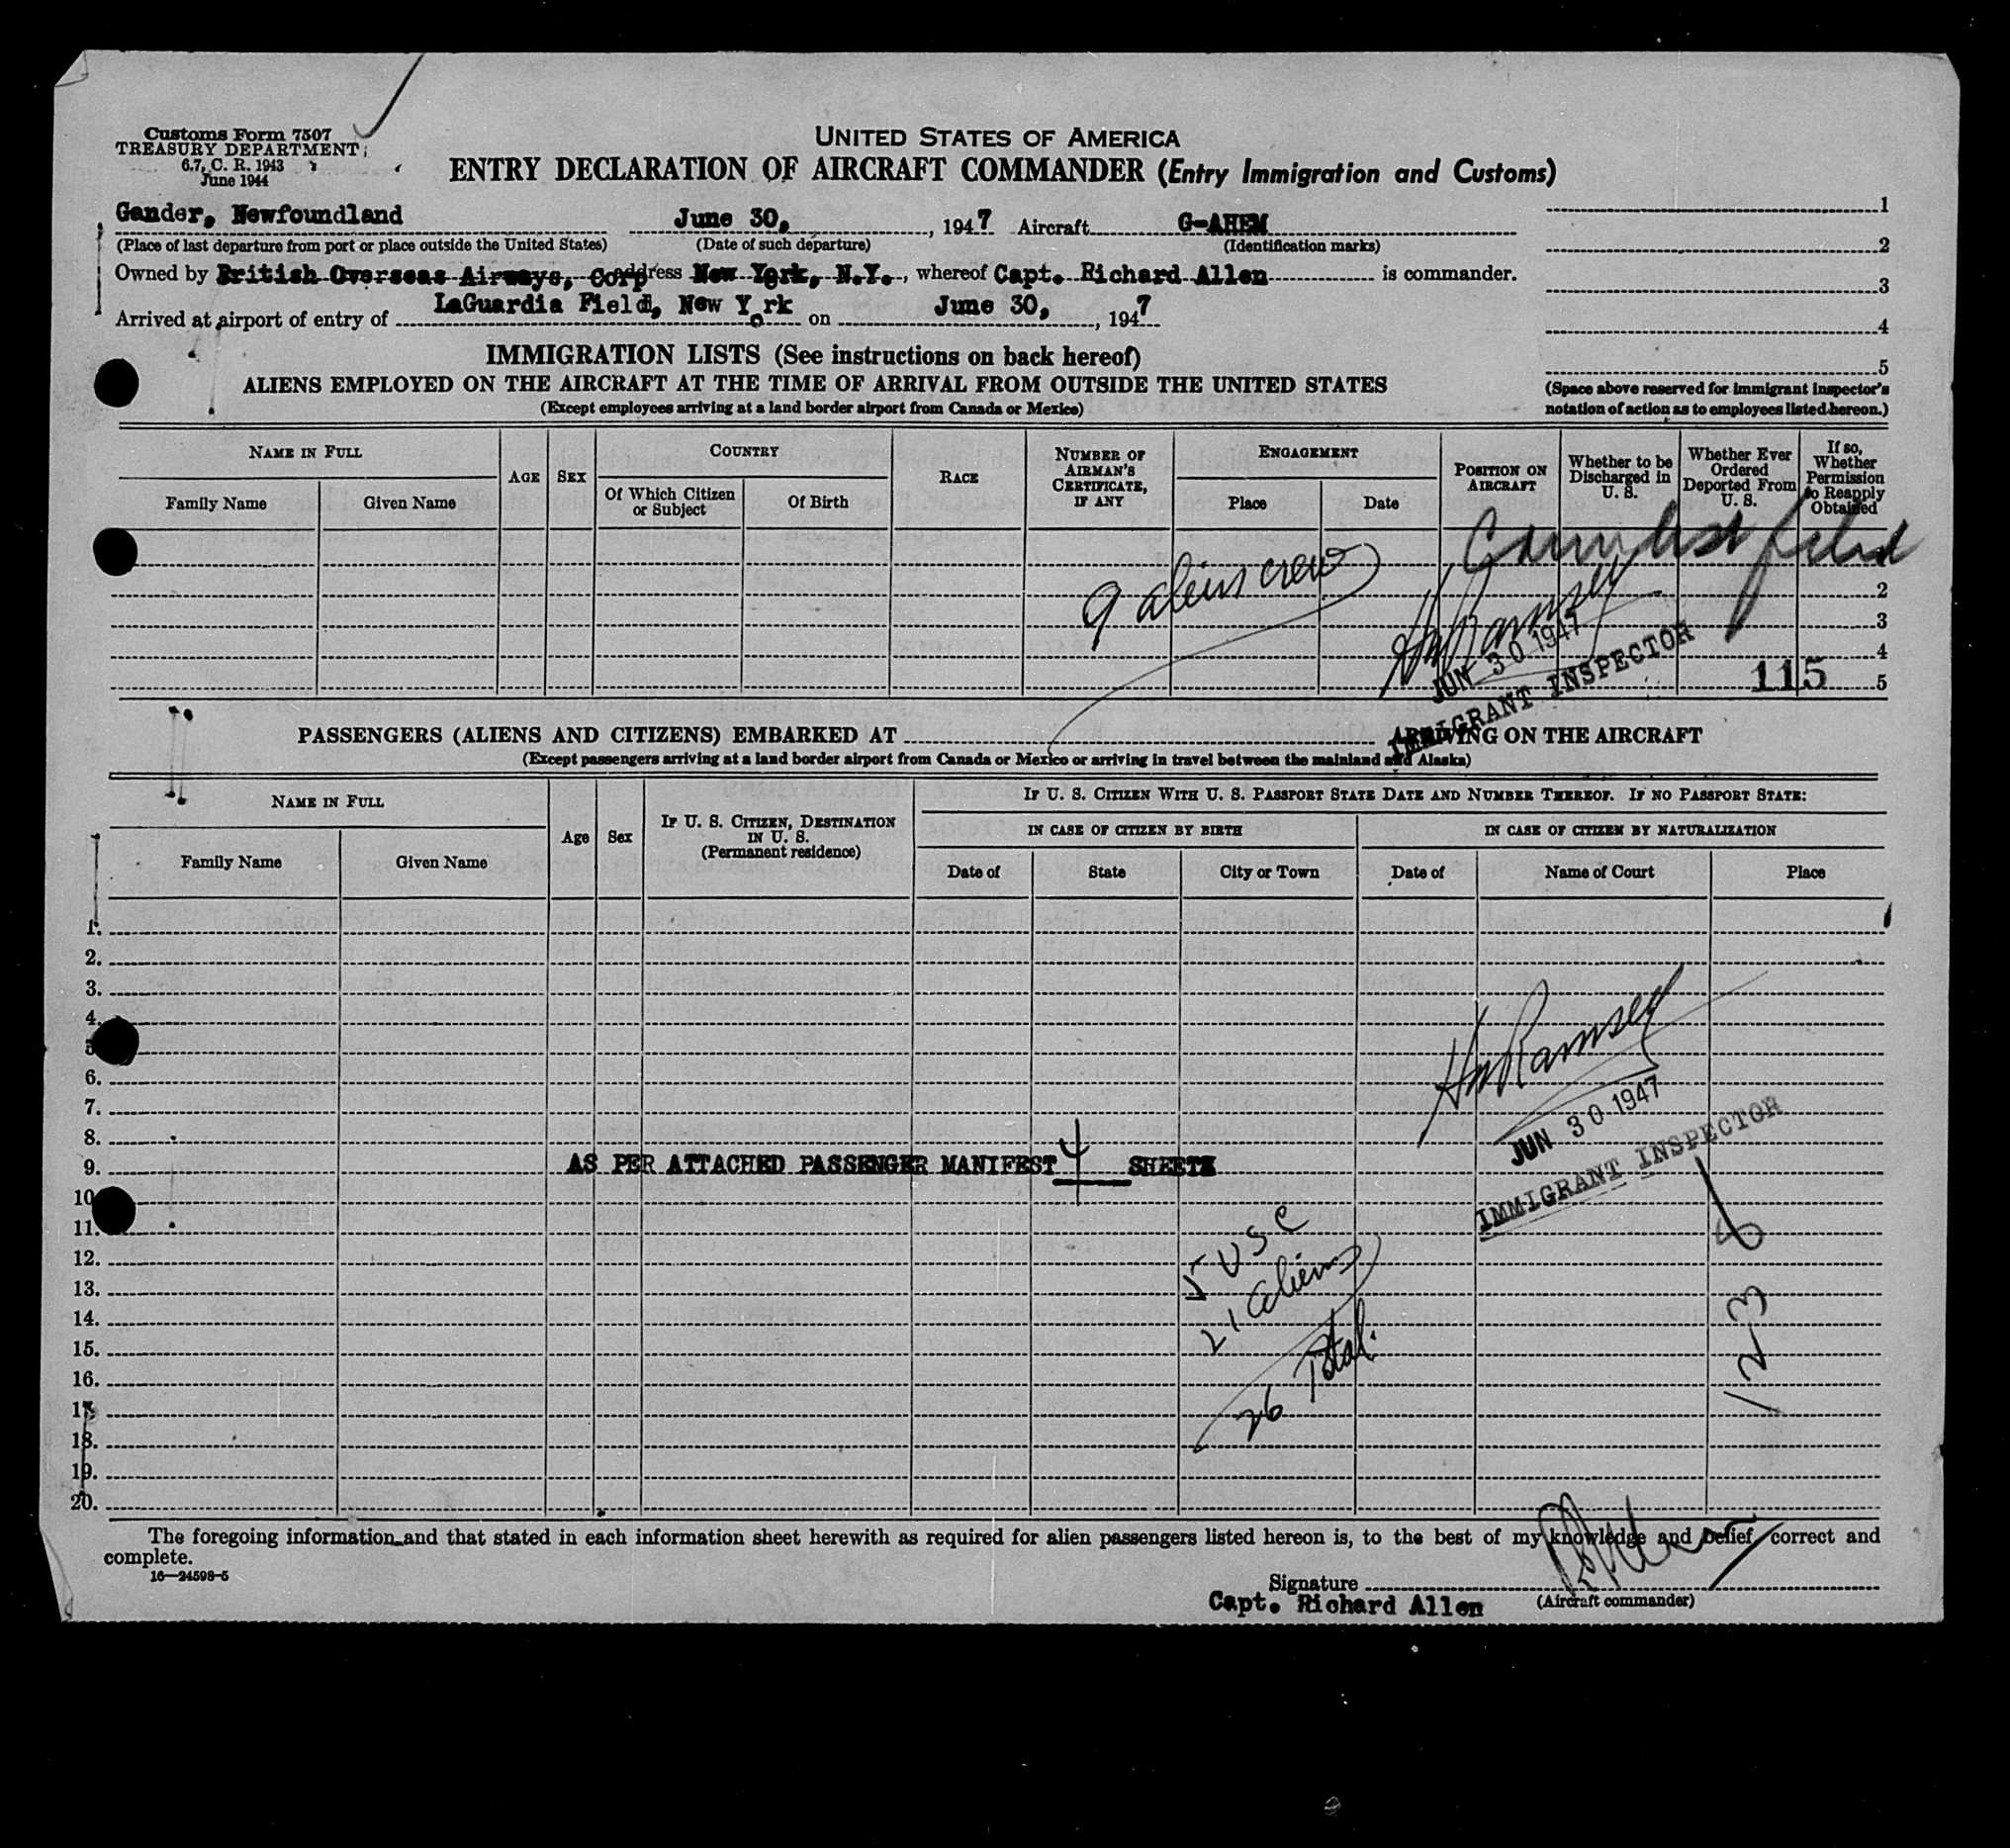 Customs Form 7507
TREASURY DEPARTMENT
6.7, C. R. 1943
June 1944
UNITED STATES OF AMERICA
ENTRY DECLARATION OF AIRCRAFT COMMANDER (Entry Immigration and Customs)
Gander, Newfoundland June 30, , 1947 Aircraft G-AHEM
(Place of last departure from port or place outside the United States) (Date of such departure) (Identification marks)
Owned by British Overseas Airways, Corp address New York, N.Y. , whereof Capt. Richard Allen is commander.
Arrived at airport of entry of LaGuardia Field, New York on June 30, , 1947
1
2
3
4
5
(Space above reserved for immigrant inspector's
notation of action as to employees listed hereon.)
IMMIGRATION LISTS (See instructions on back hereof)
ALIENS EMPLOYED ON THE AIRCRAFT AT THE TIME OF ARRIVAL FROM OUTSIDE THE UNITED STATES
(Except employees arriving at a land border airport from Canada or Mexico)
NAME IN FULL
Family Name Given Name
AGE SEX
COUNTRY
Of Which Citizen
or Subject
Of Birth
RACE
NUMBER OF
AIRMAN'S
CERTIFICATE,
IF ANY
ENGAGEMENT
Place Date
POSITION ON
AIRCRAFT
Whether to be
Discharged in
U. S.
Whether Ever
Ordered
Deported From
U. S.
If so,
Whether
Permission
to Reapply
Obtained
list filed
9 aliens crew
HW Ramsey
JUN 30 1947
IMMIGRANT INSPECTOR
2
3
4
115 5
PASSENGERS (ALIENS AND CITIZENS) EMBARKED AT ARRIVING ON THE AIRCRAFT
(Except passengers arriving at a land border airport from Canada or Mexico or arriving in travel between the mainland and Alaska)
NAME IN FULL
Family Name Given Name
Age Sex
IF U. S. CITIZEN, DESTINATION
IN U. S.
(Permanent residence)
IF U. S. CITIZEN WITH U. S. PASSPORT STATE DATE AND NUMBER THEREOF. IF NO PASSPORT STATE:
IN CASE OF CITIZEN BY BIRTH IN CASE OF CITIZEN BY NATURALIZATION
Date of State City or Town Date of Name of Court Place
1.
2.
3.
4.
5
6.
7.
8.
9.
10
11.
12.
13.
14.
15.
16.
17.
18.
19.
20.
HW Ramsey
JUN 30 1947
IMMIGRANT INSPECTOR
AS PER ATTACHED PASSENGER MANIFEST 4 SHEETS
5 USC
21 aliens
26 Total.
The foregoing information and that stated in each information sheet herewith as required for alien passengers listed hereon is, to the best of my knowledge and belief correct and
complete.
16—24598-5
Signature
Capt. Richard Allen (Aircraft commander)